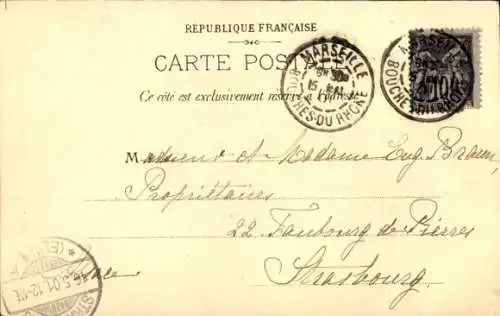 RÉPUBLIQUE FRANÇAISE
CARTE POSTALE
Ce côté est exclusivement réservé à l'adresse
MARSEILLE
15 MAI
BOUCHES-DU-RHÔNE
MARSEILLE
BOUCHES-DU-RHÔNE
10
Monsieur et Madame Eug. Braun,
Propriétaires
22 Faubourg de Pierre
Strasbourg.
16.5.01.12-1N.
STRASSBURG
(ELS.)